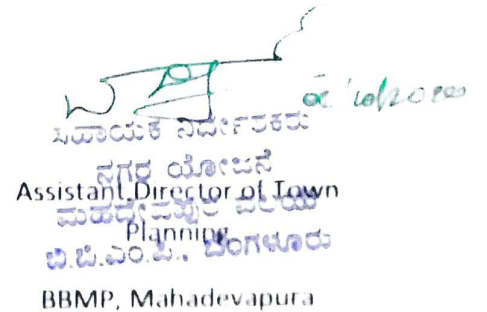 ಸಹಾಯಕ ನಿರ್ದೇಶಕರು
ನಗರ ಯೋಜನೆ
Assistant Director of Town
ಮಹದೇವಪುರ ವಲಯ
Planning
ಬಿ.ಬಿ.ಎಂ.ಪಿ., ಬೆಂಗಳೂರು
BBMP, Mahadevapura